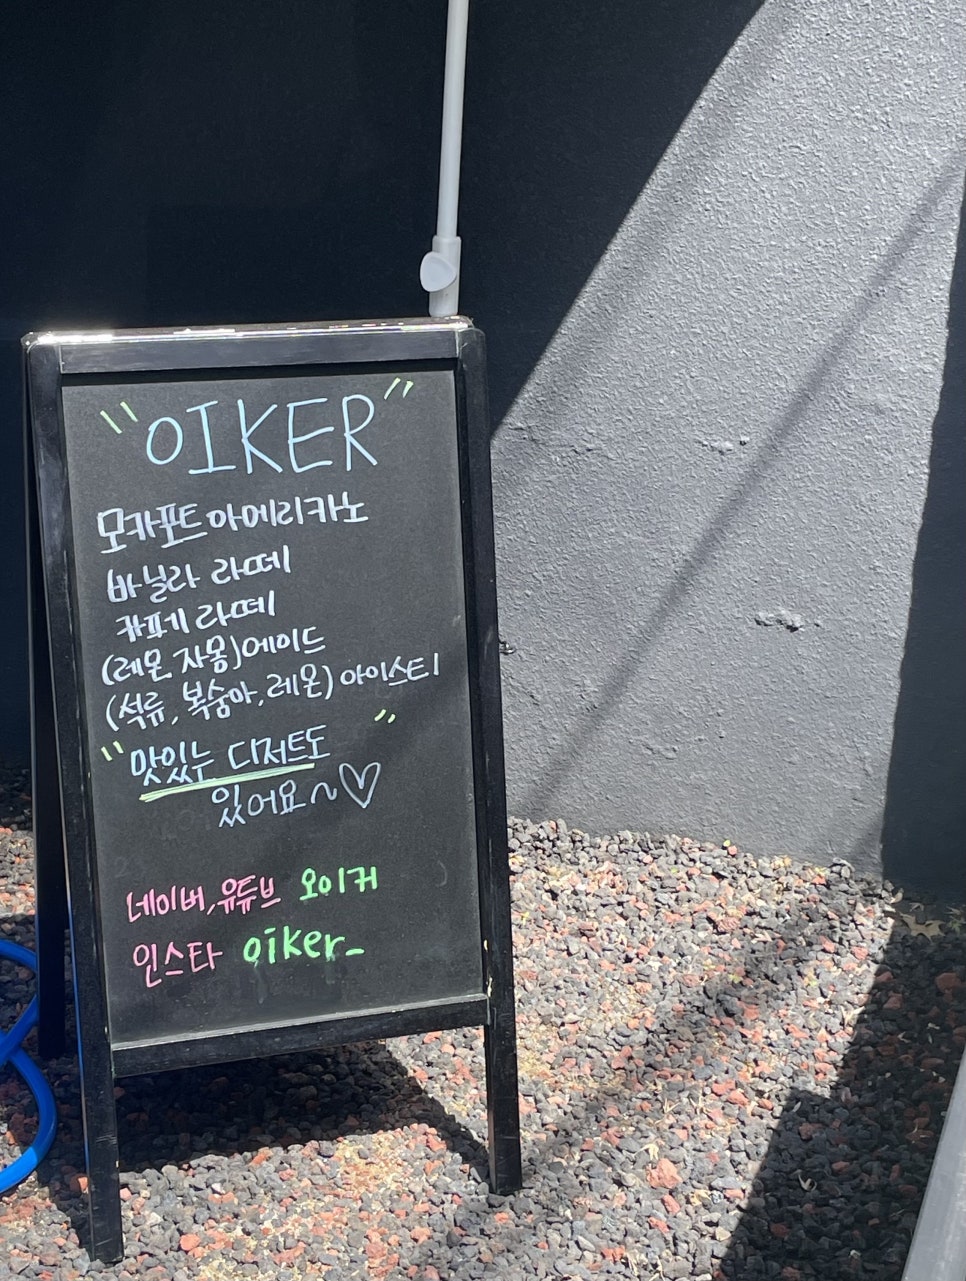 "OIKER"
모카포트 아메리카노
바닐라 라떼
카페 라떼
(레몬 자몽)에이드
(석류, 복숭아, 레몬) 아이스티
"맛있는 디저트도"
있어요~♡
네이버, 유튜브 오이커
인스타 oiker_